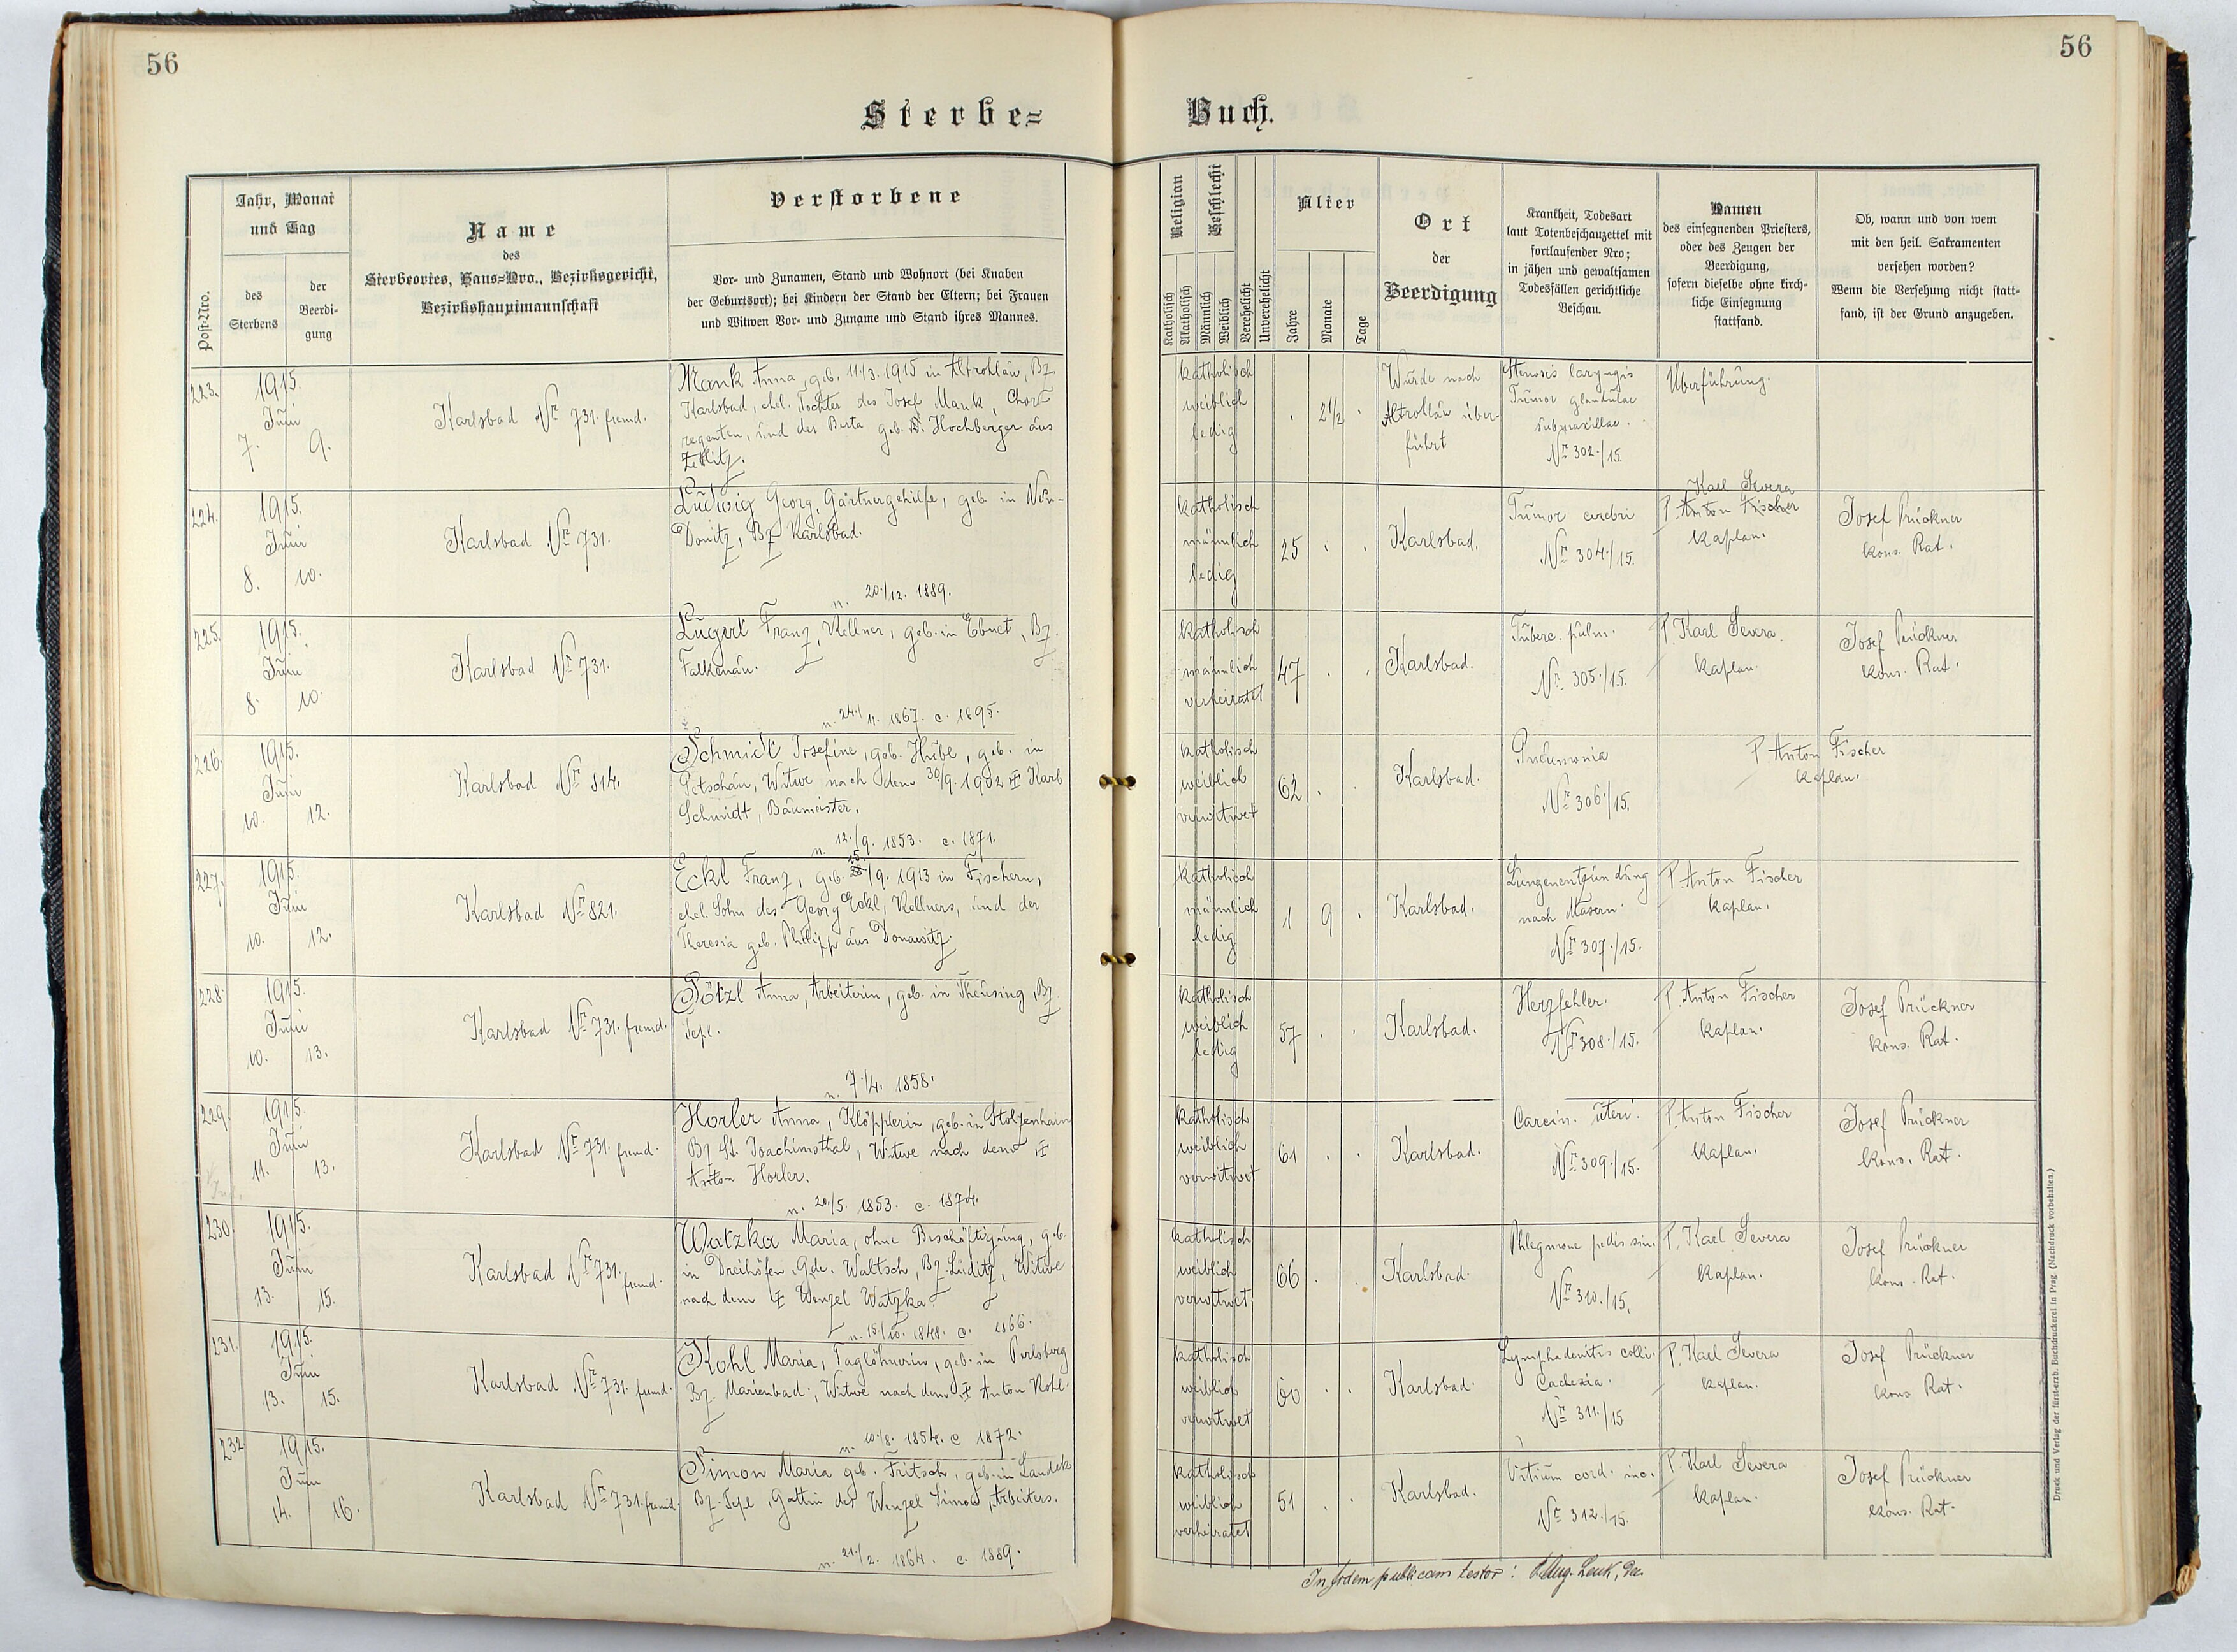 56
56
Sterbe=
Buch.
Post-Nro.
Jahr, Monat
und Tag
des
Sterbens
der
Beerdi-
gung
Name
des
Sterbeortes, Haus=Nro., Bezirksgericht,
Bezirkshauptmannschaft
Verstorbene
Vor- und Zunamen, Stand und Wohnort (bei Knaben
der Geburtsort); bei Kindern der Stand der Eltern; bei Frauen
und Witwen Vor- und Zuname und Stand ihres Mannes.
Religion
Katholisch
Akatholisch
Geschlecht
Männlich
Weiblich
Verehelicht
Unverehelicht
Alter
Jahre
Monate
Tage
Ort
der
Beerdigung
Krankheit, Todesart
laut Totenbeschauzettel mit
fortlaufender Nro;
in jähen und gewaltsamen
Todesfällen gerichtliche
Beschau.
Namen
des einsegnenden Priesters,
oder des Zeugen der
Beerdigung,
sofern dieselbe ohne kirch-
liche Einsegnung
stattfand.
Ob, wann und von wem
mit den heil. Sakramenten
versehen worden?
Wenn die Versehung nicht statt-
fand, ist der Grund anzugeben.
223.
1915.
Juni
7. 9.
Karlsbad Nr. 731. fremd.
Mank Anna, geb. 11./3. 1915 in Altrohlau, Bz.
Karlsbad, ehel. Tochter des Josef Mank, Chor-
regenten, und der Berta geb. Hochberger aus
Zettlitz.
katholisch
weiblich
ledig
. 2 1/2 .
Wurde nach
Altrollau über-
führt
Stenosis laryngis
Tumor glandulae
submaxillae.
Nr. 302./15.
Überführung.
224.
1915.
Juni
8. 10.
Karlsbad Nr. 731.
Ludwig Georg, Gärtnergehilfe, geb. in Neu-
Donitz, Bz Karlsbad.
n. 20./12. 1889.
katholisch
männlich
ledig
25 . .
Karlsbad.
Tumor cerebri
Nr. 304./15.
Karl Severa
P. Anton Fischer
Kaplan.
Josef Prückner
kons. Rat.
225.
1915.
Juni
8. 10.
Karlsbad Nr. 731.
Lugert Franz, Kellner, geb. in Ebmet, Bz.
Falkenau.
n. 24./11. 1867. c. 1895.
katholisch
männlich
verheiratet
47 . .
Karlsbad.
Tuberc. pulm.
Nr. 305./15.
P. Karl Severa.
Kaplan.
Josef Prückner
kons. Rat.
226.
1915.
Juni
10. 12.
Karlsbad Nr. 814.
Schmidt Josefine, geb. Hubl, geb. in
Petschau, Witwe nach dem 30/9. 1902 † Karl
Schmidt, Baumeister.
n. 12./9. 1853. c. 1871.
katholisch
weiblich
verwitwet
62 . .
Karlsbad.
Pneumonia
Nr. 306./15.
P. Anton Fischer
Kaplan.
227.
1915.
Juni
10. 12.
Karlsbad Nr. 821.
Eckl Franz, geb. 15./9. 1913 in Fischern,
ehel. Sohn des Georg Eckl, Kellners, und der
Theresia geb. Philipp aus Donawitz.
katholisch
männlich
ledig
1 9 .
Karlsbad.
Lungenentzündung
nach Masern.
Nr. 307./15.
P. Anton Fischer
Kaplan.
228.
1915.
Juni
10. 13.
Karlsbad Nr. 731. fremd.
Pötzl Anna, Arbeiterin, geb. in Theusing, Bz.
Tepl.
n. 7./4. 1858.
katholisch
weiblich
ledig
57 . .
Karlsbad.
Herzfehler.
Nr. 308./15.
P. Anton Fischer
Kaplan.
Josef Prückner
kons. Rat.
229.
1915.
Juni
11. 13.
Karlsbad Nr. 731. fremd.
Horler Anna, Klöpplerin, geb. in Stolzenhain
Bz St. Joachimsthal, Witwe nach dem †
Anton Horler.
n. 20./5. 1853. c. 1874.
katholisch
weiblich
verwitwet
61 . .
Karlsbad.
Carcin. uteri.
Nr. 309./15.
P. Anton Fischer
Kaplan.
Josef Prückner
kons. Rat.
230.
1915.
Juni
13. 15.
Karlsbad Nr. 731. fremd.
Watzka Maria, ohne Beschäftigung, geb.
in Dreihöfen, Gde. Waltsch, Bz. Luditz, Witwe
nach dem † Wenzel Watzka.
n. 15./10. 1848. c. 1866.
katholisch
weiblich
verwitwet
66 . .
Karlsbad.
Phlegmone pedis sin.
Nr. 310./15.
P. Karl Severa
Kaplan.
Josef Prückner
kons. Rat.
231.
1915.
Juni
13. 15.
Karlsbad Nr. 731. fremd.
Kohl Maria, Taglöhnerin, geb. in Perlsberg
Bz. Marienbad, Witwe nach dem † Anton Kohl.
n. 10./8. 1854. c 1872.
katholisch
weiblich
verwitwet
60 . .
Karlsbad.
Lymphadenitis colli.
Cachexia.
Nr. 311./15
P. Karl Severa
Kaplan.
Josef Prückner
kons. Rat.
232
1915.
Juni
14. 16.
Karlsbad Nr. 731. fremd.
Simon Maria geb. Fritsch, geb. in Landek
Bz. Tepl, Gattin des Wenzel Simon, Arbeiters.
n. 21./2. 1864. c. 1889.
katholisch
weiblich
verheiratet
51 . .
Karlsbad.
Vitium cord. inc.
Nr. 312./15.
P. Karl Severa
Kaplan.
Josef Prückner
kons. Rat.
In fidem publicam testor: P. Aug. Lenk, Dec.
Druck und Verlag der fürst-erzb. Buchdruckerei in Prag. (Nachdruck vorbehalten.)